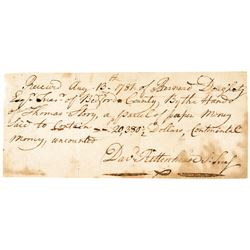 Received Aug. 13th 1781 of Bernard Dougherty
Esqr. Trear. of Bedford County, By the Hands
of Thomas Story, a parcel of paper Money
Said to Contain -- 20,380½ Dollars, Continental
Money, uncounted
Davd. Rittenhouse